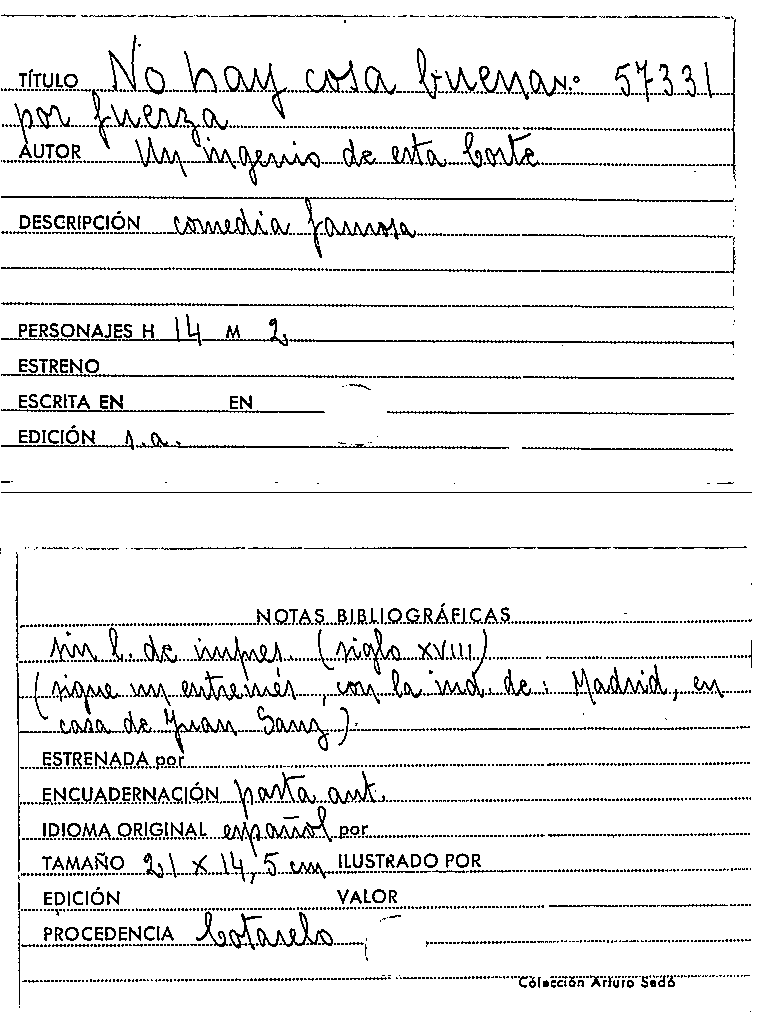 TÍTULO No hay cosa buena N.º 57331
por fuerza
AUTOR Un ingenio de esta Corte
DESCRIPCIÓN comedia famosa
PERSONAJES H 14 M 2
ESTRENO
ESCRITA EN EN
EDICIÓN s.a.
NOTAS BIBLIOGRÁFICAS
sin l. de impres. (siglo XVIII)
(sigue un entremés, con la ind. de: Madrid, en
casa de Juan Sanz)
ESTRENADA por
ENCUADERNACIÓN pasta ant.
IDIOMA ORIGINAL español por
TAMAÑO 21 x 14,5 cm ILUSTRADO POR
EDICIÓN VALOR
PROCEDENCIA Cotarelo
Colección Arturo Sedó